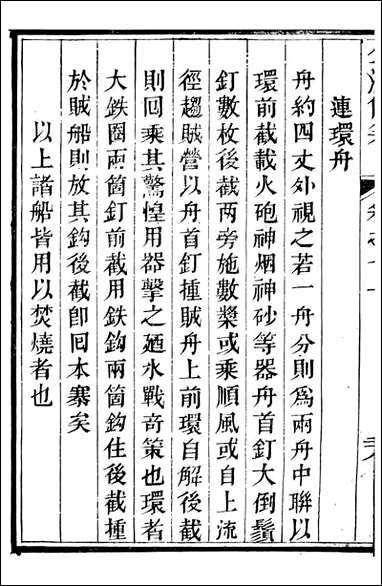 連環舟
舟約四丈外視之若一舟分則爲兩舟中聯以
環前截載火砲神烟神砂等器舟首釘大倒鬚
釘數枚後截两旁施數槳或乘順風或自上流
徑趨賊營以舟首釘揰賊舟上前環自解後截
則回乘其驚惶用器擊之廼水戰竒策也環者
大鉄圈兩箇釘前截用鉄鈎兩箇鈎住後截揰
於賊船則放其鈎後截卽回本寨矣
以上諸船皆用以焚燒者也